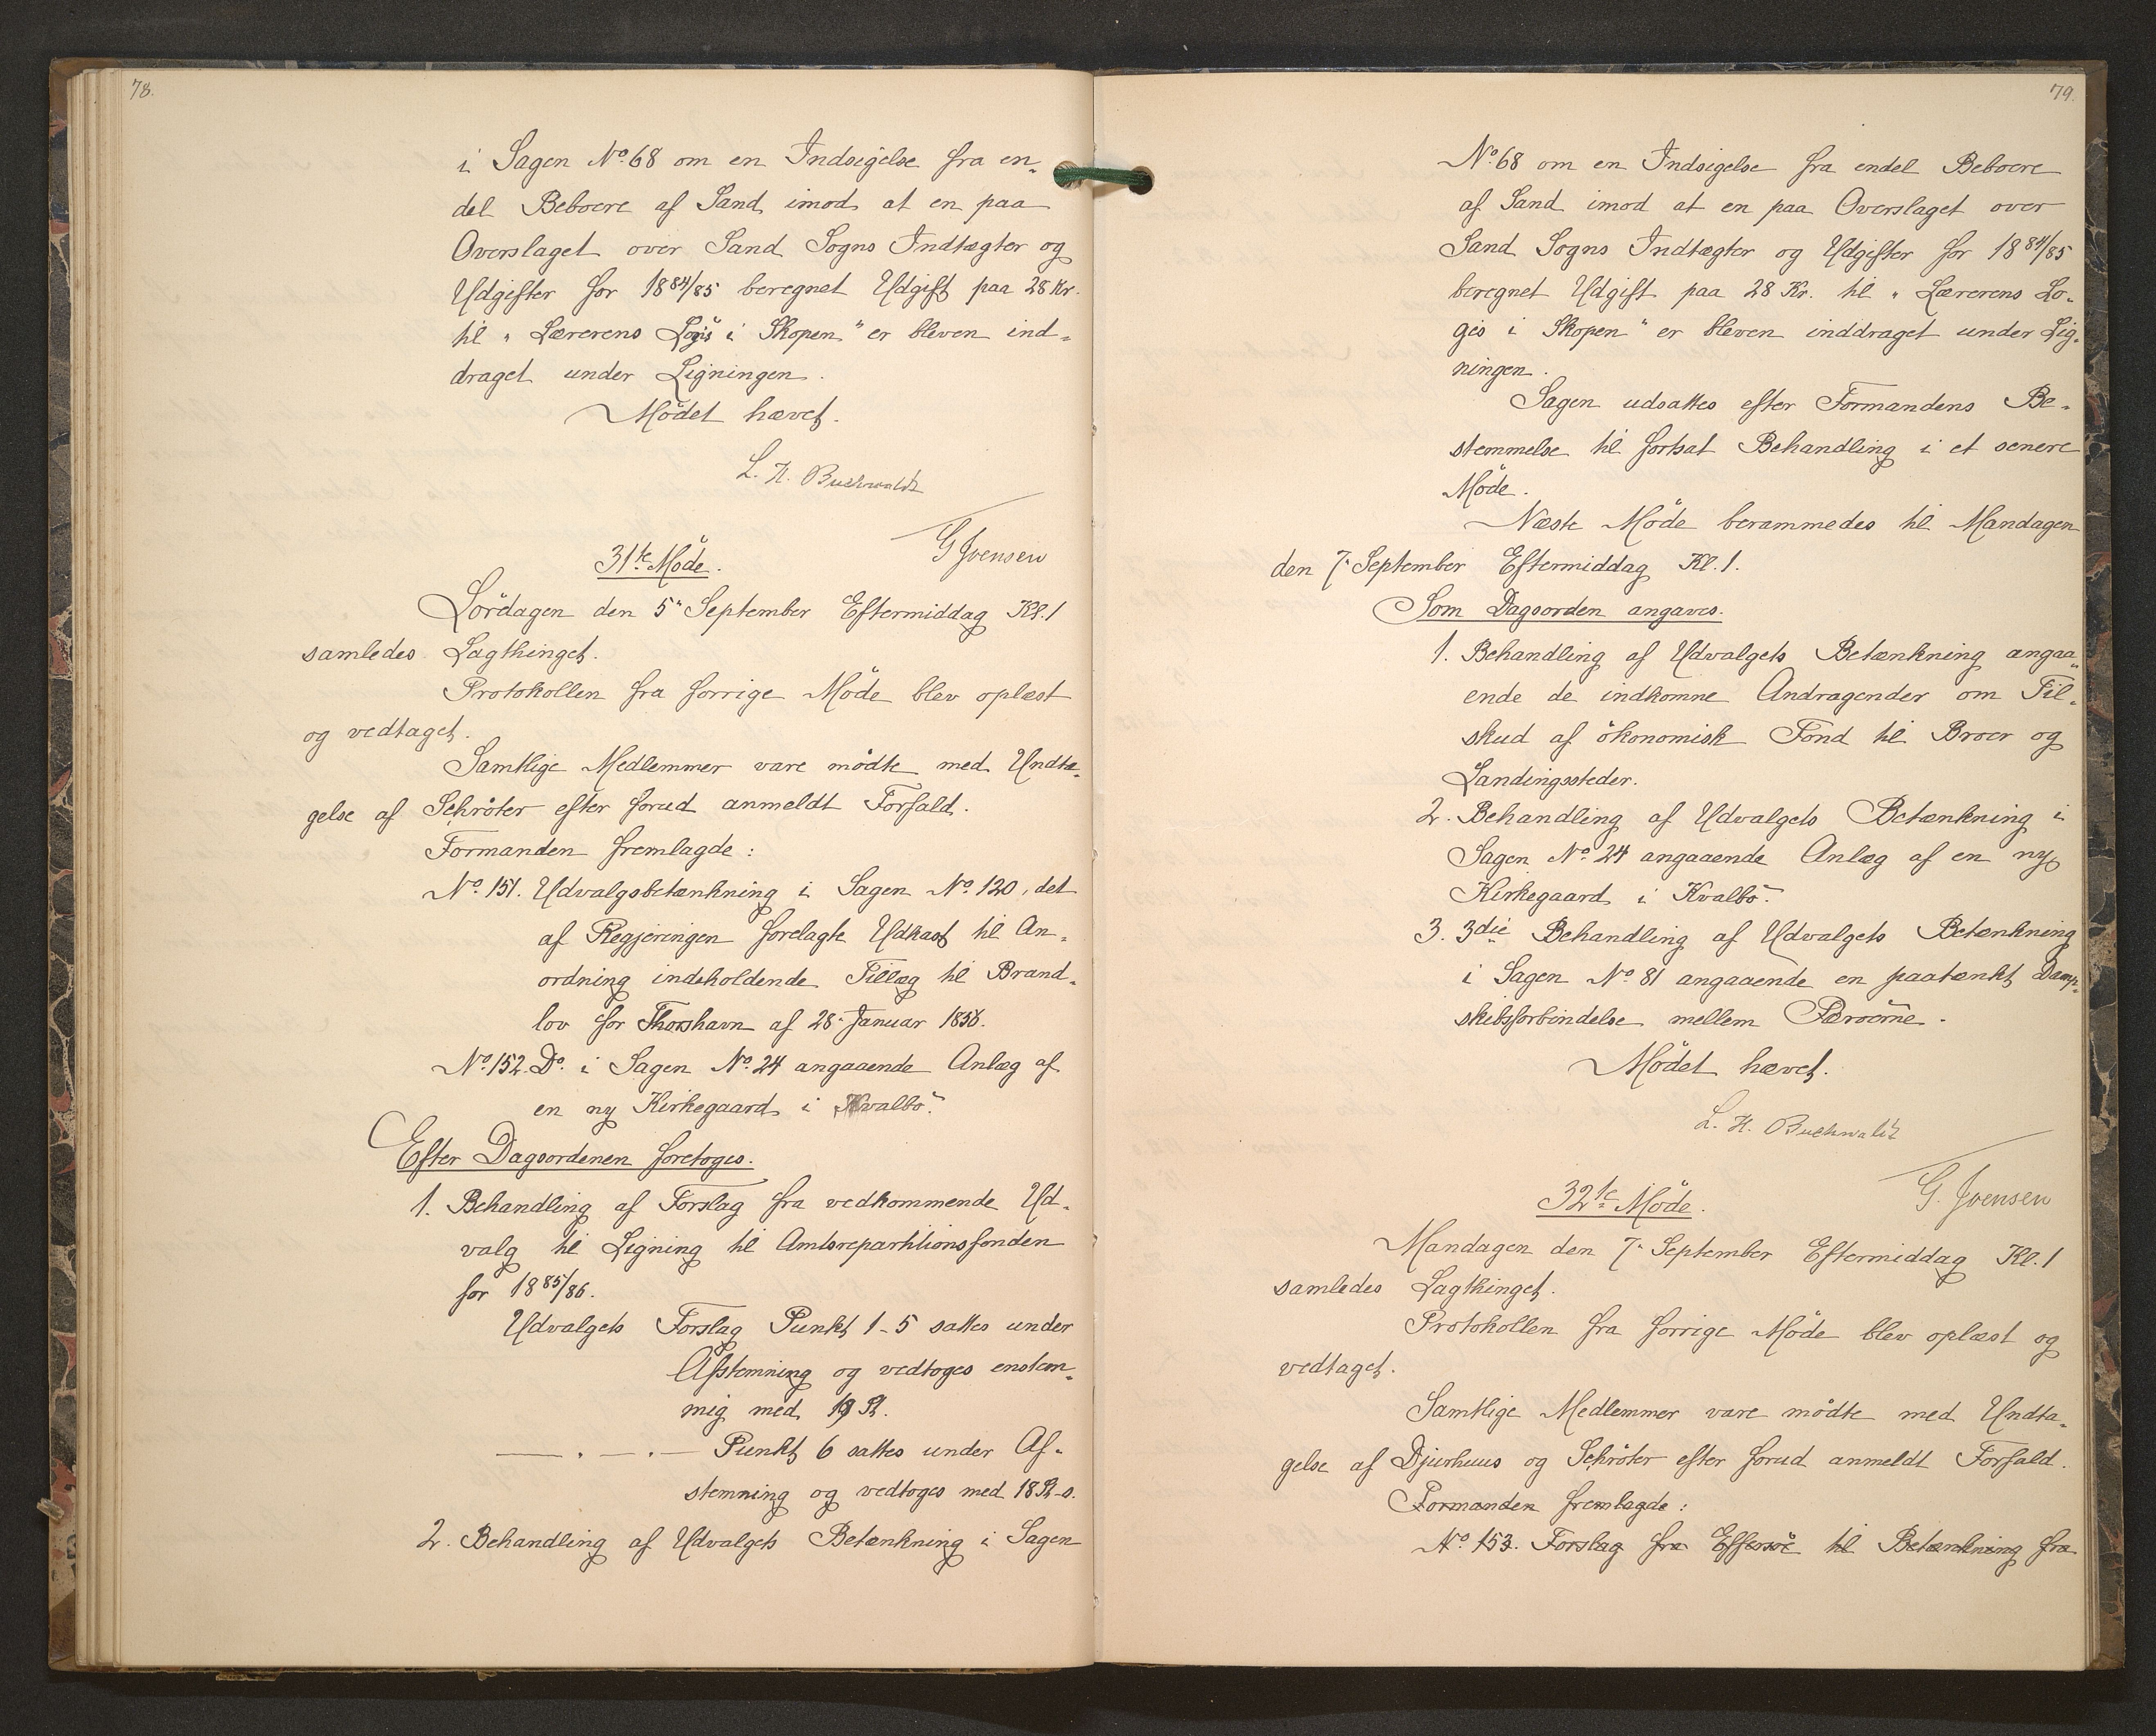 78.
i Sagen No. 68 om en Indsigelse fra en-
del Beboere af Sand imod at en paa
Overslaget over Sand Sogns Indtægter og
Udgifter for 1884/85 beregnet Udgift paa 28 Kr.
til "Lærerens Logis i Skopen" er bleven ind-
draget under Ligningen.
Mödet hævet.
L. H. Buchwaldt
G Joensen
31te Möde.
Lördagen den 5" September Eftermiddag Kl. 1
samledes Lagthinget.
Protokollen fra forrige Möde blev oplæst
og vedtaget.
Samtlige Medlemmer vare mödte med Undta-
gelse af Schröter efter forud anmeldt Forfald.
Formanden fremlagde:
No. 151. Udvalgsbetænkning i Sagen No. 120, det
af Regjeringen forelagte Udkast til An-
ordning indeholdende Tillæg til Brand-
lov for Thorshavn af 28" Januar 1836.
No. 152. Do. i Sagen No. 24 angaaende Anlæg af
en ny Kirkegaard i Kvalbö.
Efter Dagsordenen foretoges.
1. Behandling af Forslag fra vedkommende Ud-
valg til Ligning til Amtsrepartitionsfonden
for 1885/86.
Udvalgets Forslag Punkt 1-5 sattes under
Afstemning og vedtoges enstem-
mig med 19 St.
— " — " — Punkt 6 sattes under Af-
stemning og vedtoges med 18 St-s.
2. Behandling af Udvalgets Betænkning i Sagen
79.
No. 68 om en Indsigelse fra endel Beboere
af Sand imod at en paa Overslaget over
Sand Sogns Indtægter og Udgifter for 1884/85
beregnet Udgift paa 28 Kr. til "Lærerens Lo-
gis i Skopen" er bleven inddraget under Lig-
ningen.
Sagen udsattes efter Formandens Be-
stemmelse til fortsat Behandling i et senere
Möde.
Næste Möde berammedes til Mandagen
den 7" September Eftermiddag Kl. 1.
Som Dagsorden angaves.
1. Behandling af Udvalgets Betænkning angaa-
ende de indkomne Andragender om Til-
skud af ökonomisk Fond til Broer og
Landingssteder.
2. Behandling af Udvalgets Betænkning i
Sagen No. 24 angaaende Anlæg af en ny
Kirkegaard i Kvalbö.
3. 3die Behandling af Udvalgets Betænkning
i Sagen No. 81 angaaende en paatænkt Damp-
skibsforbindelse mellem Færöerne.
Mödet hævet.
L. H. Buchwaldt
G. Joensen
32te Möde.
Mandagen den 7" September Eftermiddag Kl. 1
samledes Lagthinget.
Protokollen fra forrige Möde blev oplæst og
vedtaget.
Samtlige Medlemmer vare mödte med Undta-
gelse af Djurhuus og Schröter efter forud anmeldt Forfald.
Formanden fremlagde:
No. 153. Forslag fra Effersöe til Betænkning fra